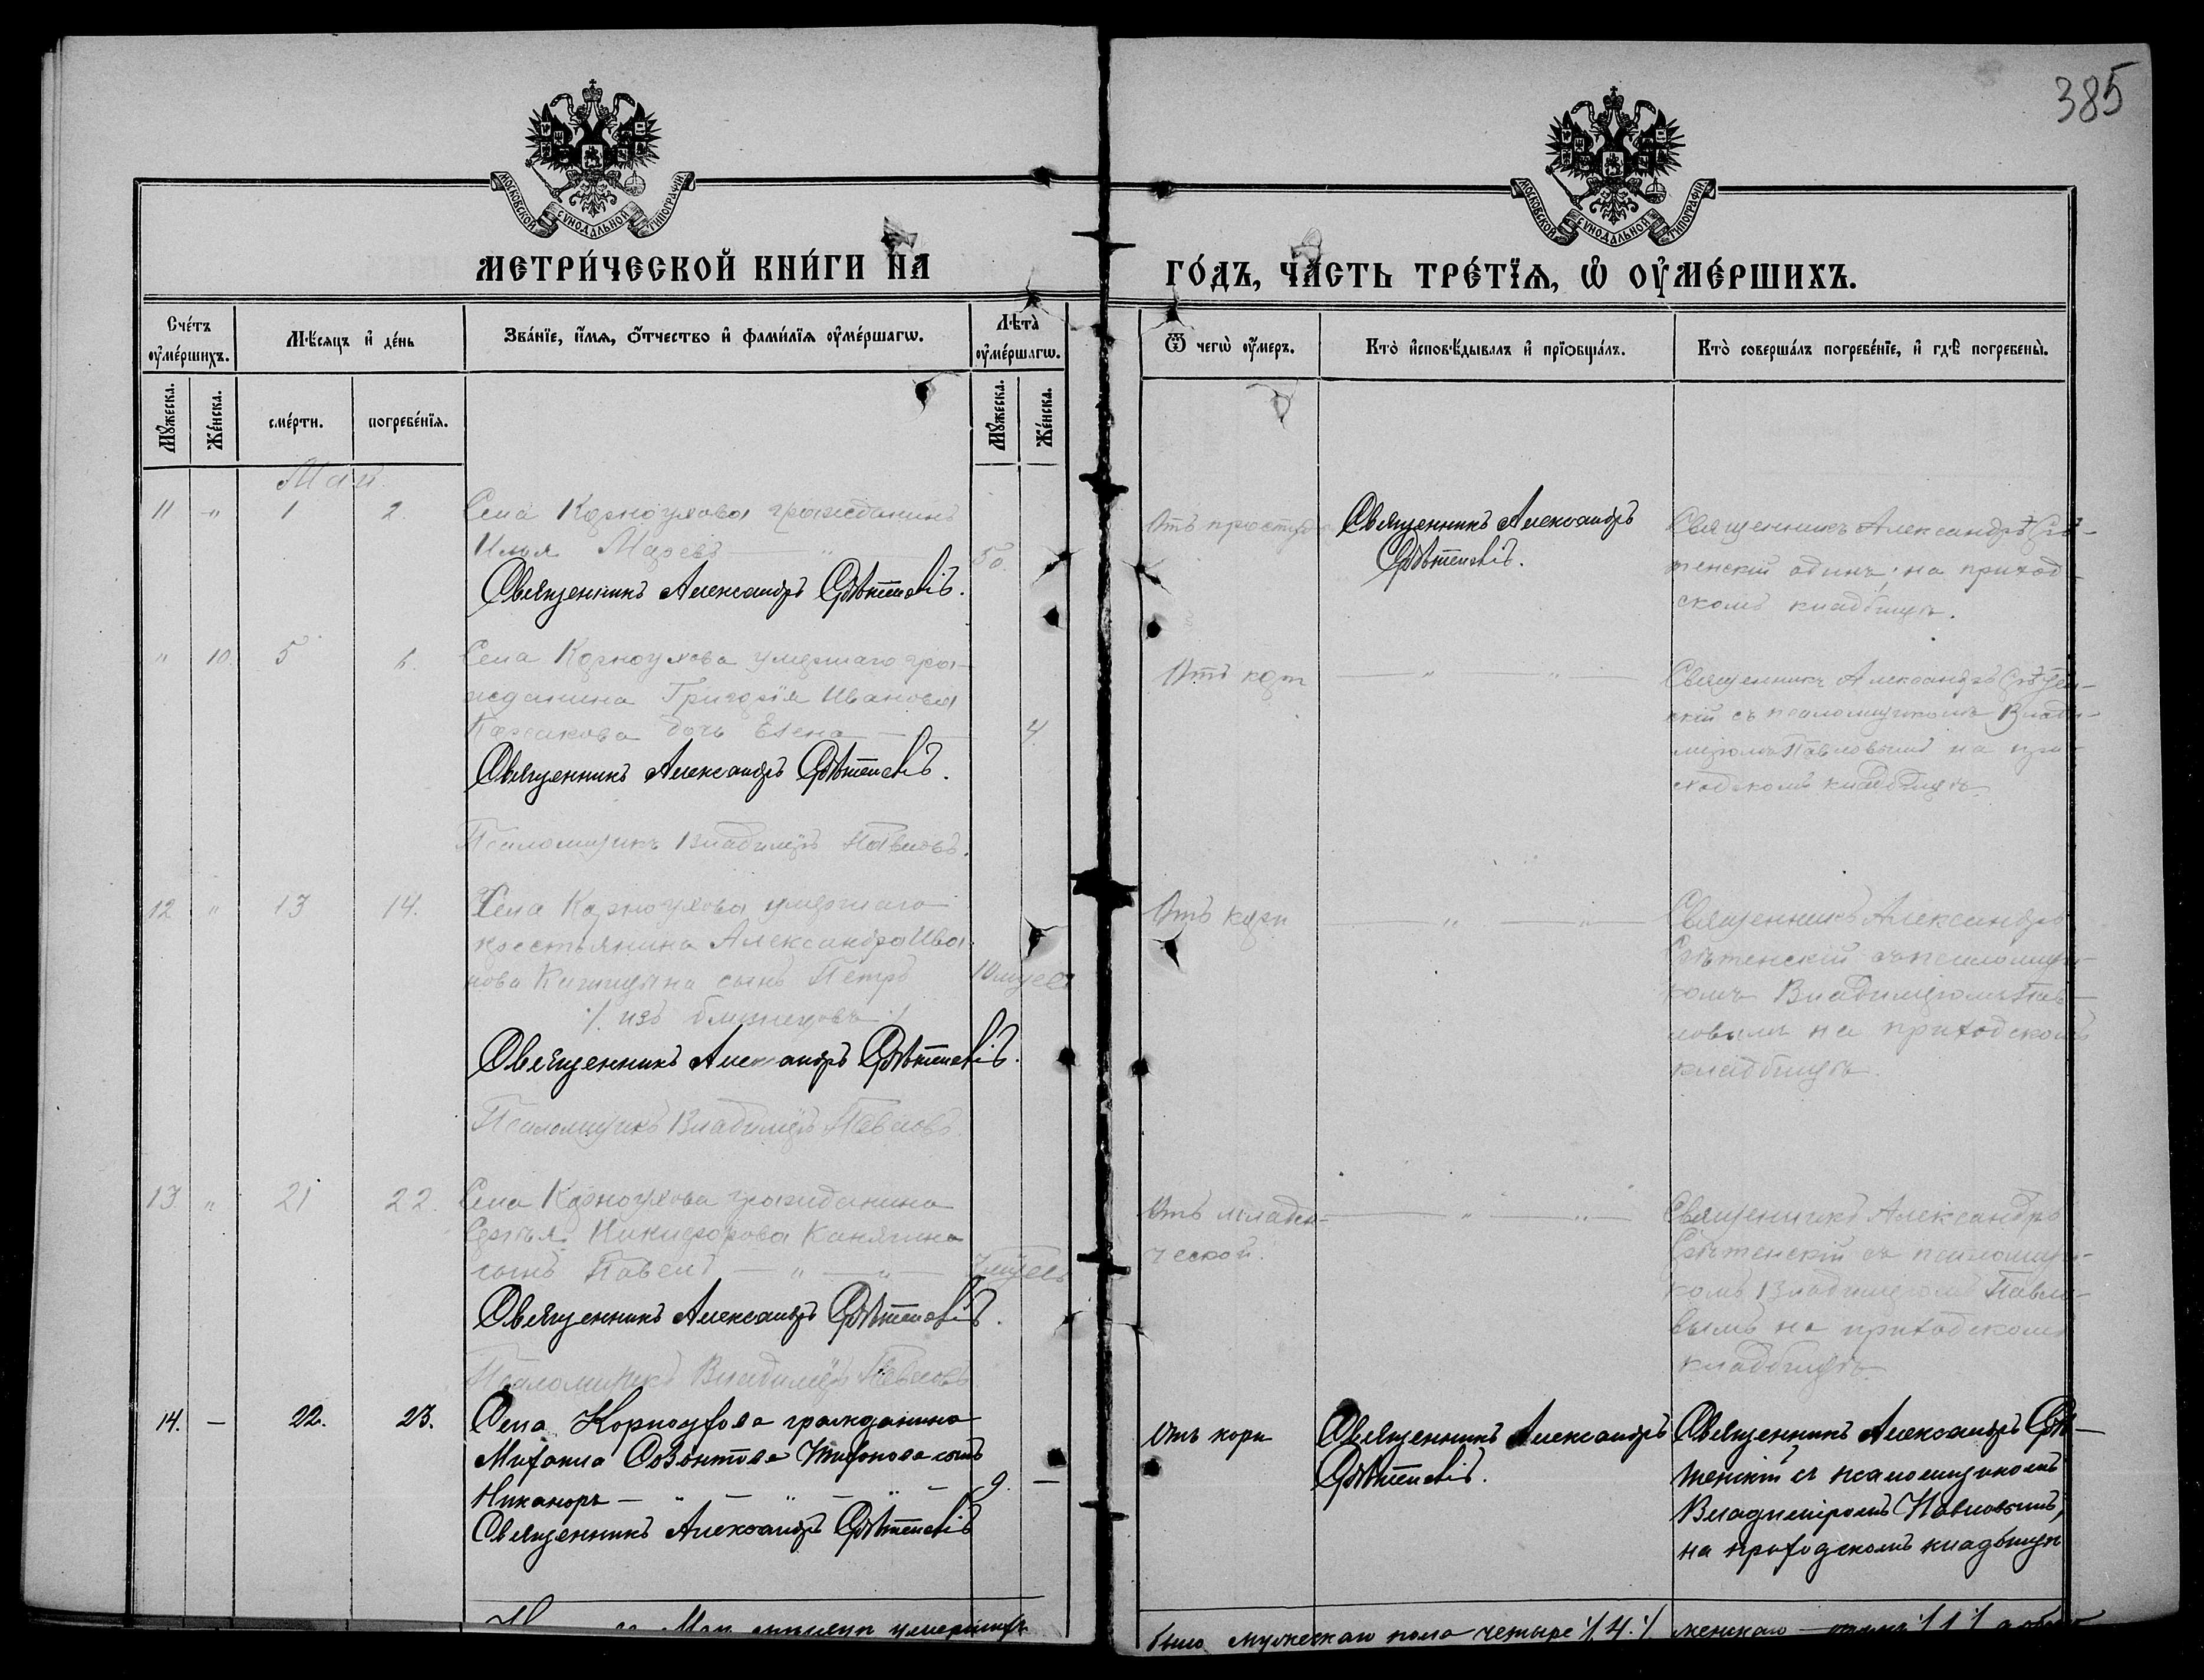 385
МОСКОВСКОЙ СѴНОДАЛЬНОЙ ТИПОГРАФІИ
МОСКОВСКОЙ СѴНОДАЛЬНОЙ ТИПОГРАФІИ
МЕТРИ́ЧЕСКОЙ КНИ́ГИ НА
ГО́ДЪ, ЧА́СТЬ ТРЕ́ТЇѦ, Ѡ҆ ОУ҆МЕ́РШИХЪ.
Сче́тъ оу҆ме́ршихъ.
Мѣ́сяцъ и҆ де́нь
Зва́нїе, и҆́мѧ, ѻ҆́тчество и҆ фами́лїѧ оу҆ме́ршагѡ.
Лѣ́та оу҆ме́ршагѡ.
Ѿ чегѡ̀ оу҆́меръ.
Кто̀ и҆сповѣ́дывалъ и҆ прїѡбща́лъ.
Кто̀ соверша́лъ погребе́нїе, и҆ гдѣ̀ погребены̀.
Мꙋ́жеска.
Же́нска.
сме́рти.
погребе́нїѧ.
Мꙋ́жеска.
Же́нска.
Май.
11 " 1 2.
Села Корноухова гражданинъ
Илья Мазевъ "
50.
Священникъ Александръ Срѣтенскій.
Отъ простуды
Священникъ Александръ
Срѣтенскій.
Священникъ Александръ Срѣ-
тенскій одинъ; на приход-
скомъ кладбищѣ.
" 10. 5 6.
Села Корноухова умершаго гра-
жданина Григорія Иванова
дочь Елена
4.
Священникъ Александръ Срѣтенскій.
Псаломщикъ Владиміръ Павловъ.
Отъ кори
" "
Священникъ Александръ Срѣтен-
скій съ псаломщикомъ Влади-
міромъ Павловымъ на при-
ходскомъ кладбищѣ.
12 " 13 14.
Села Корноухова умершаго
крестьянина Александра Ива-
нова сынъ Петръ
10 мѣсяц.
/. изъ близнецовъ ./
Священникъ Александръ Срѣтенскій.
Псаломщикъ Владиміръ Павловъ.
Отъ кори
" "
Священникъ Александръ
Срѣтенскій съ псаломщи-
комъ Владиміромъ Пав-
ловымъ на приходскомъ
кладбищѣ.
13 " 21 22.
Села Корноухова гражданина
Сергѣя Никифорова Канягина
сынъ Павелъ — " — " —
Священникъ Александръ Срѣтенскій.
Псаломщикъ Владиміръ Павловъ
Отъ младен-
ческой.
" "
Священникъ Александръ
Срѣтенскій съ псаломщи-
комъ Владиміромъ Павло-
вымъ на приходскомъ
кладбищѣ.
14. — 22. 23.
Села Корноухова гражданина
Михаила Созонтова сынъ
Никаноръ — " — " — " —
9. —
Священникъ Александръ Срѣтенскій
Отъ кори
Священникъ Александръ
Срѣтенскій.
Священникъ Александръ Срѣ-
тенскій съ псаломщикомъ
Владиміромъ Павловымъ,
на приходскомъ кладбищѣ
Маѣ мѣсяцѣ умершихъ
было мужескаго пола четыре /.4./ женскаго /.1./ а обоего